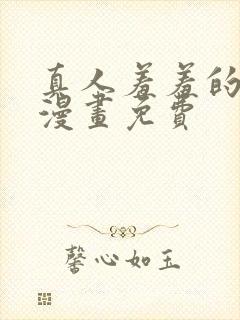 真人羞羞的
漫畫免費
馨心如玉